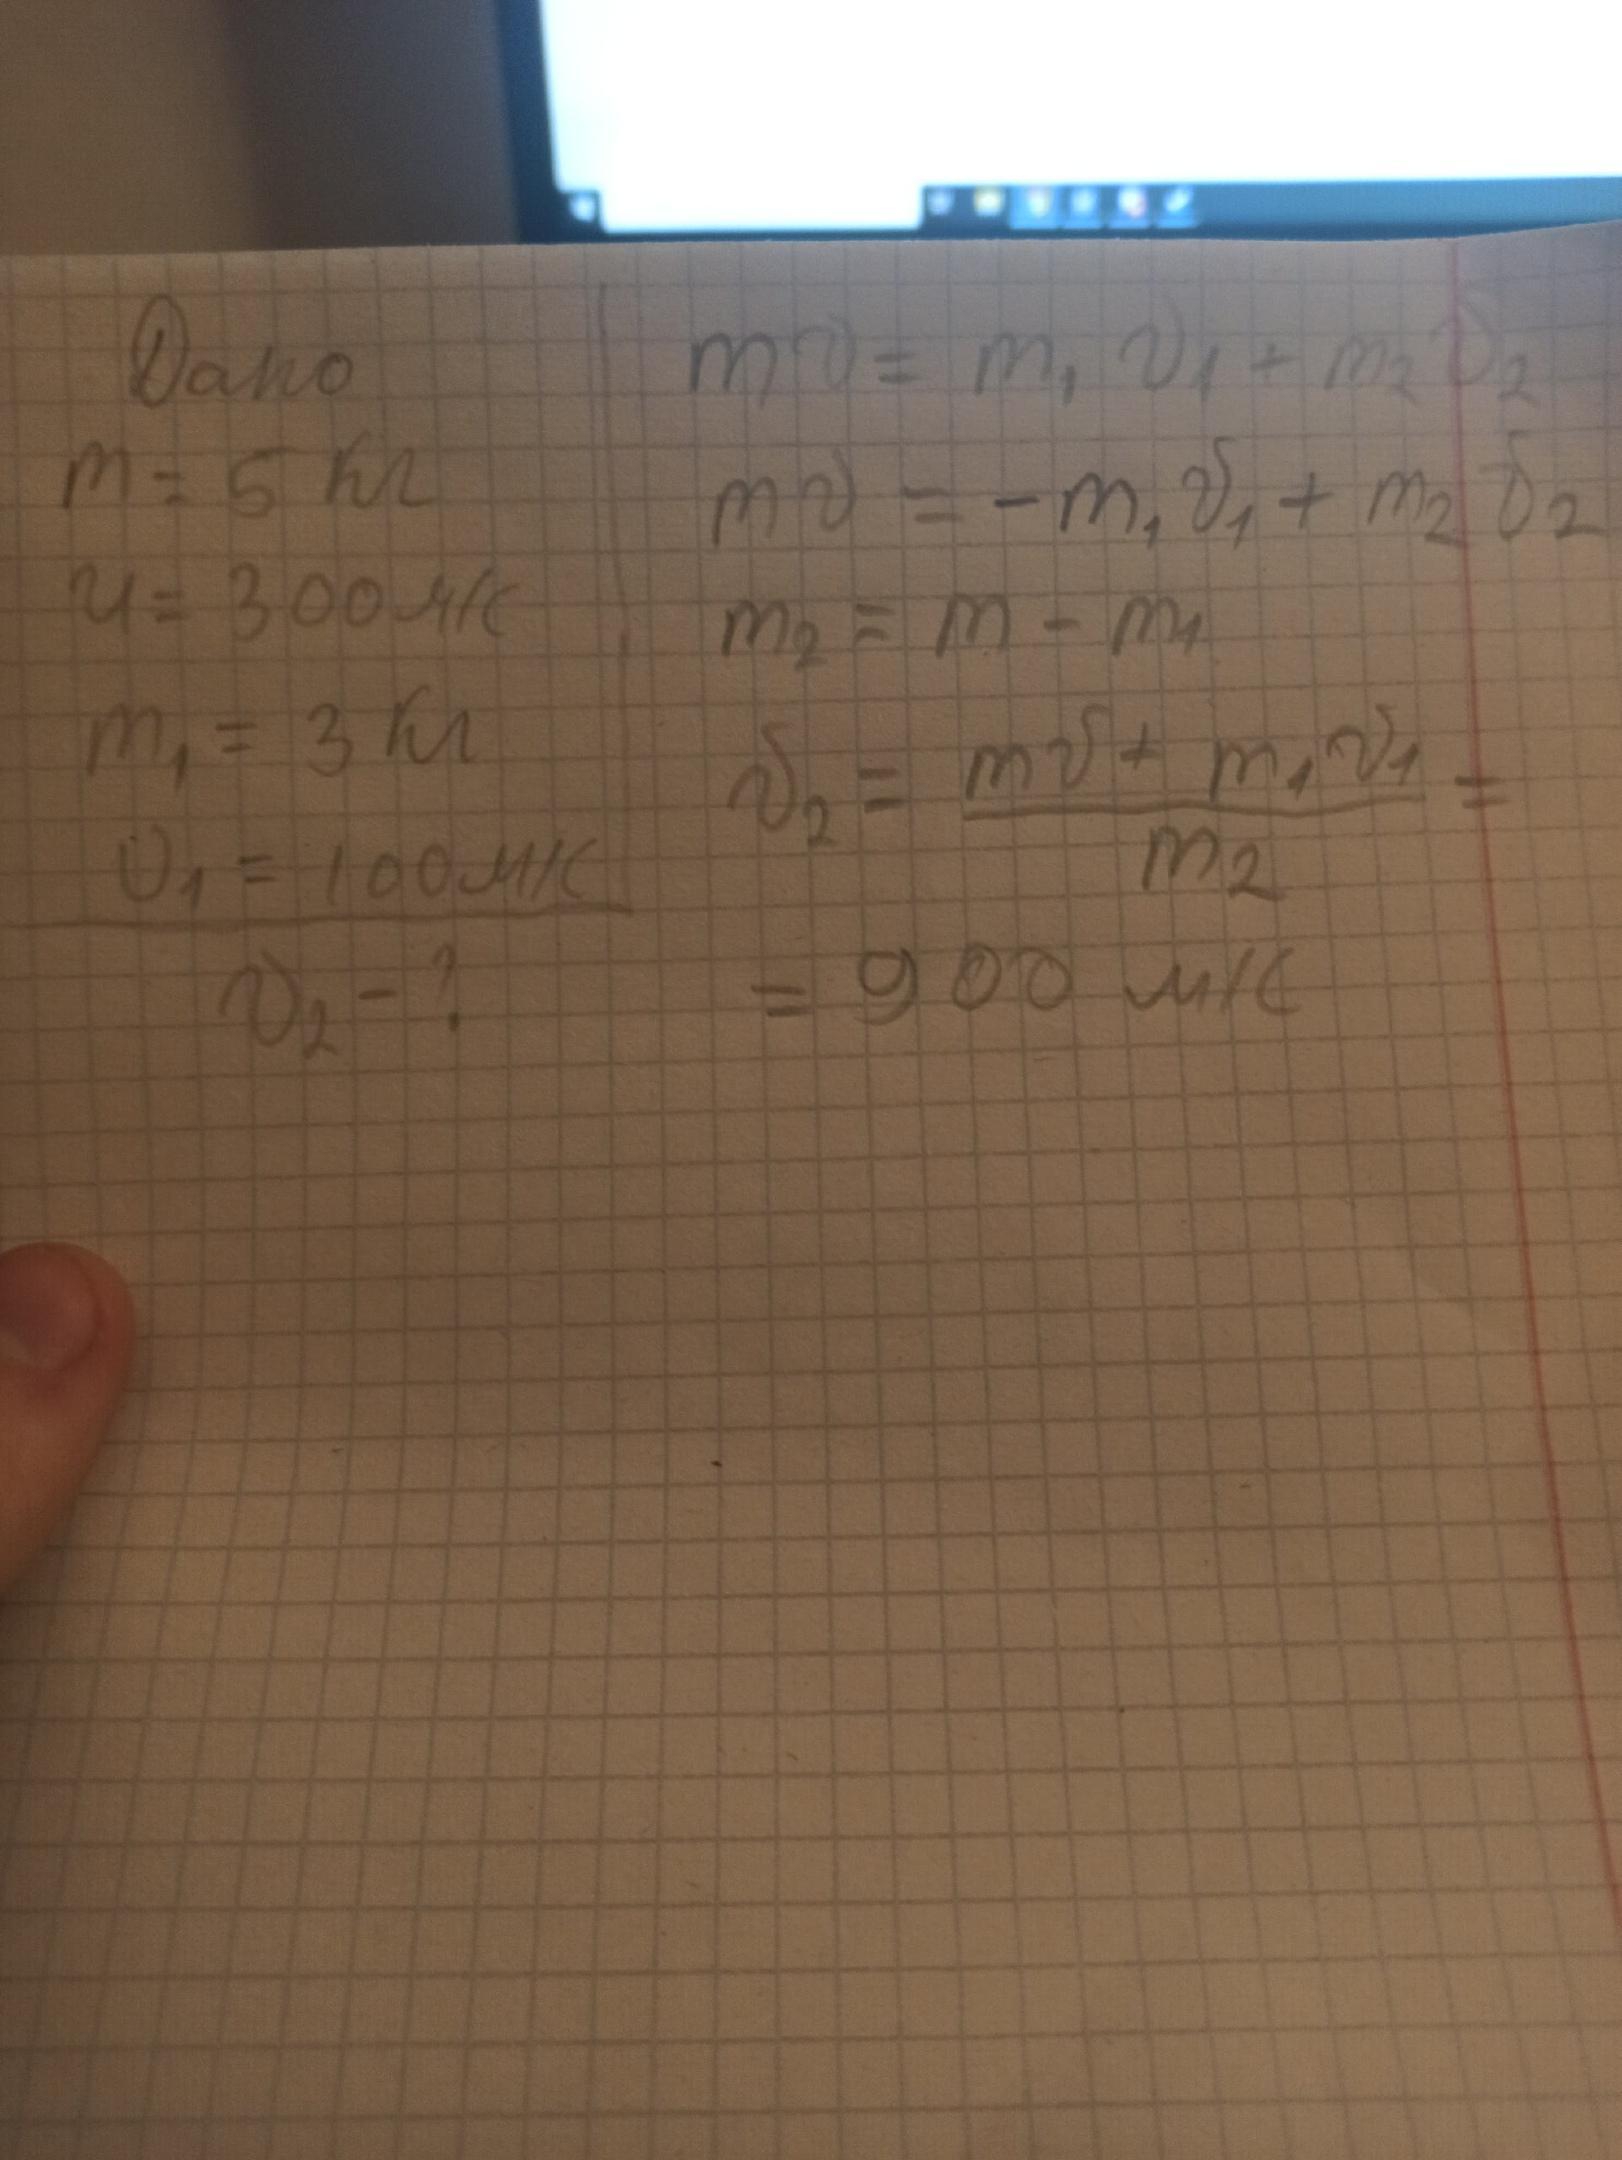 Дано
m = 5 кг
u = 300 м/с
m₁ = 3 кг
v₁ = 100 м/с
v₂ - ?
mv = m₁ v₁ + m₂ v₂
mv = -m₁ v₁ + m₂ v₂
m₂ = m - m₁
v₂ = (mv + m₁ v₁) / m₂ =
= 900 м/с